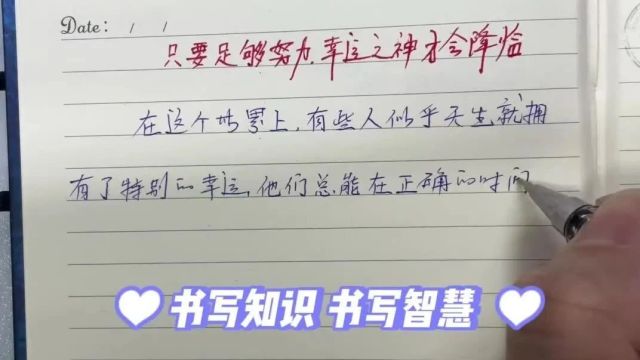 Date: / /
只要足够努力,幸运之神才会降临
在这个世界上,有些人似乎天生就拥
有了特别的幸运,他们总能在正确的时间
书写知识 书写智慧